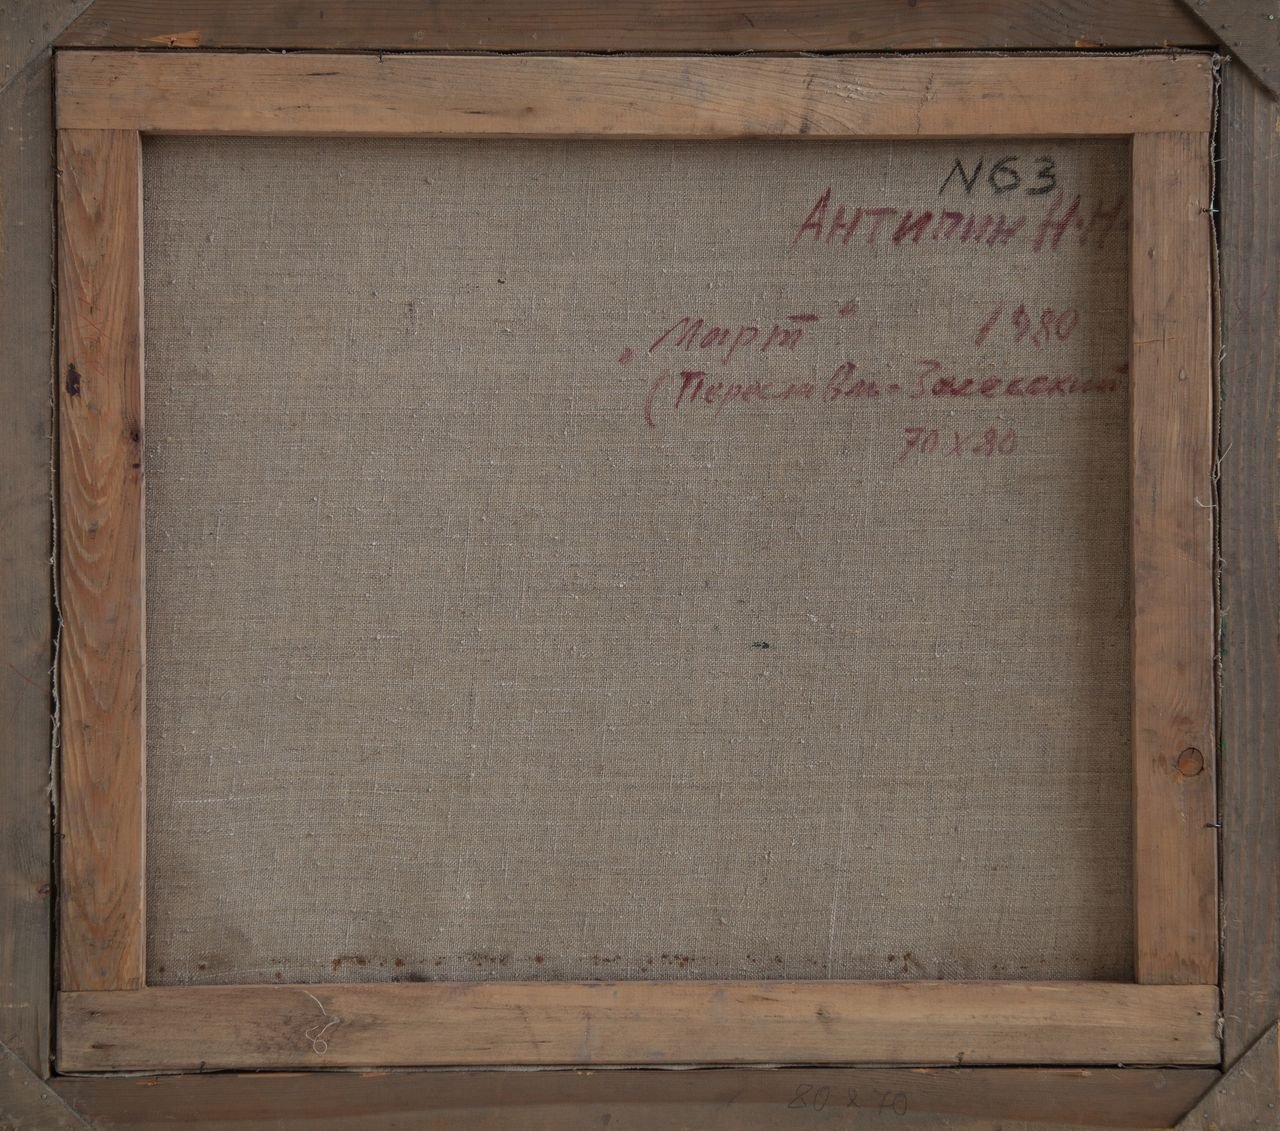 N63
Антипин Н.Н.
„Март“ 1980
(Переславль-Залесский
70 х 80
80 х 70